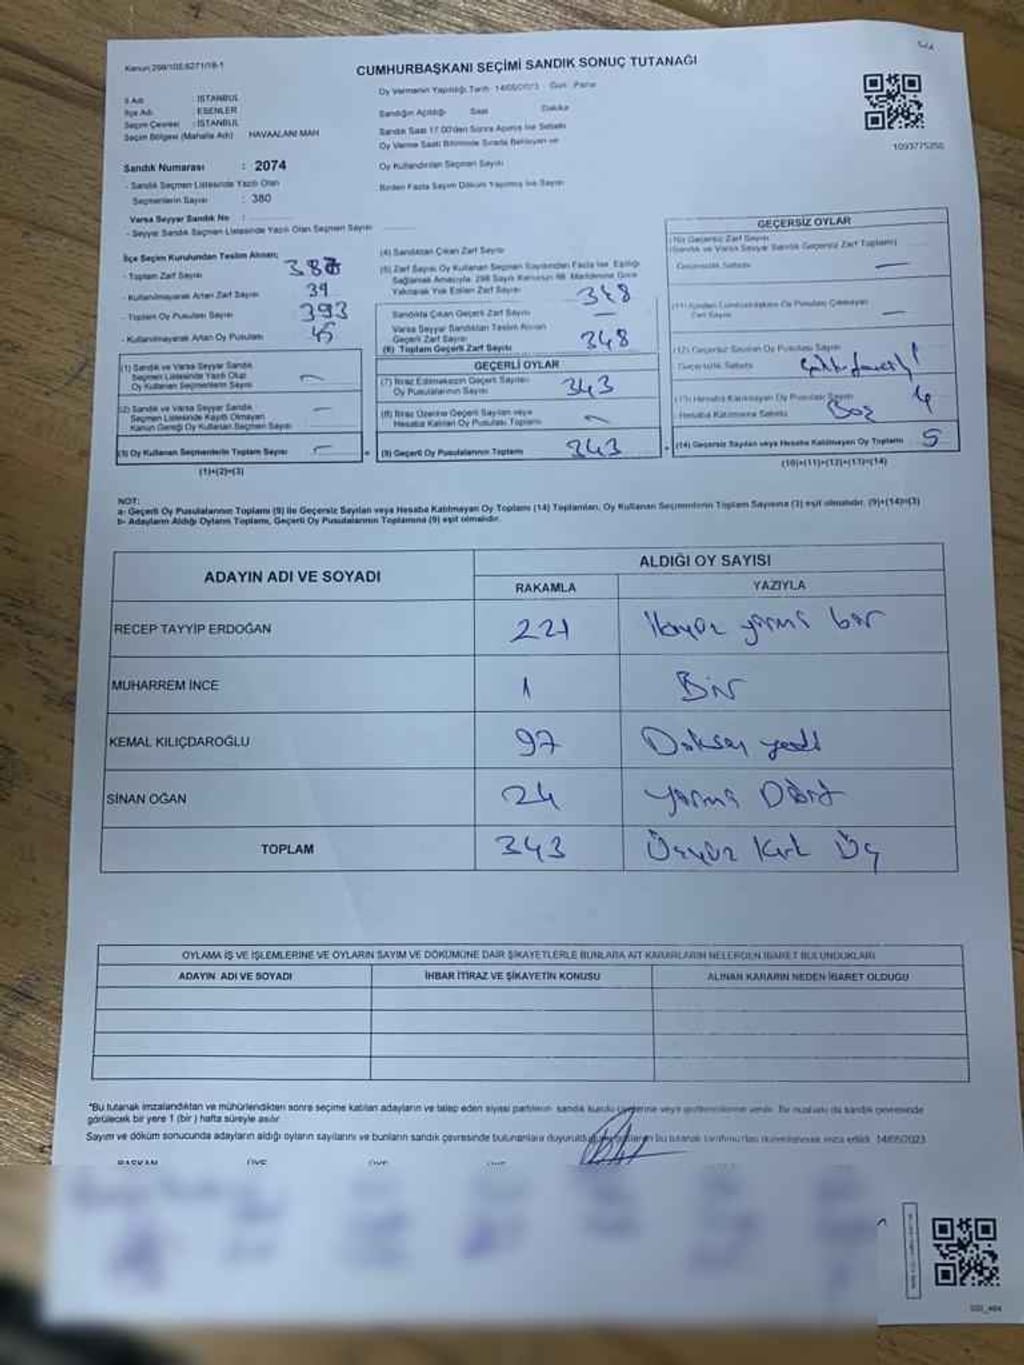 CUMHURBAŞKANI SEÇİMİ SANDIK SONUÇ TUTANAĞI
İl Adı : İSTANBUL
İlçe Adı : ESENLER
Seçim Çevresi : İSTANBUL
Seçim Bölgesi (Mahalle Adı) HAVAALANI MAH
Sandık Numarası : 2074
- Sandık Seçmen Listesinde Yazılı Olan
Seçmenlerin Sayısı : 380
Varsa Seyyar Sandık No :
- Seyyar Sandık Seçmen Listesinde Yazılı Olan Seçmen Sayısı
Oy Vermenin Yapıldığı Tarih 14/05/2023 Gün Pazar
Sandığın Açıldığı Saat Dakika
Sandık Saat 17.00'den Sonra Açılmış İse Sebebi
Oy Verme Saati Bitiminde Sırada Bekleyen ve
Oy Kullandırılan Seçmen Sayısı
Birden Fazla Sayım Döküm Yapılmış İse Sayısı
1093775250
İlçe Seçim Kurulundan Teslim Alınan;
- Toplam Zarf Sayısı
- Kullanılmayarak Artan Zarf Sayısı 39
- Toplam Oy Pusulası Sayısı 393
- Kullanılmayarak Artan Oy Pusulası 45
(1) Sandık ve Varsa Seyyar Sandık
Seçmen Listesinde Yazılı Olup
Oy Kullanan Seçmenlerin Sayısı —
(2) Sandık ve Varsa Seyyar Sandık
Seçmen Listesinde Kayıtlı Olmayan
Kanun Gereği Oy Kullanan Seçmen Sayısı —
(3) Oy Kullanan Seçmenlerin Toplam Sayısı —
(1)+(2)=(3)
(4) Sandıktan Çıkan Zarf Sayısı
(5) Zarf Sayısı Oy Kullanan Seçmen Sayısından Fazla İse, Eşitliği
Sağlamak Amacıyla; 298 Sayılı Kanunun 98. Maddesine Göre
Yakılarak Yok Edilen Zarf Sayısı
Sandıkta Çıkan Geçerli Zarf Sayısı 348
Varsa Seyyar Sandıktan Teslim Alınan
Geçerli Zarf Sayısı —
(6) Toplam Geçerli Zarf Sayısı 348
GEÇERLİ OYLAR
(7) İtiraz Edilmeksizin Geçerli Sayılan
Oy Pusulalarının Sayısı 343
(8) İtiraz Üzerine Geçerli Sayılan veya
Hesaba Katılan Oy Pusulası Toplamı —
(9) Geçerli Oy Pusulalarının Toplamı 343
GEÇERSİZ OYLAR
(10) Geçersiz Zarf Sayısı
(Sandık ve Varsa Seyyar Sandık Geçersiz Zarf Toplamı)
Geçersizlik Sebebi —
(11) İçinden Cumhurbaşkanı Oy Pusulası Çıkmayan
Zarf Sayısı —
(12) Geçersiz Sayılan Oy Pusulası Sayısı 1
Geçersizlik Sebebi
(13) Hesaba Katılmayan Oy Pusulası Sayısı 4
Hesaba Katılmama Sebebi Boş
(14) Geçersiz Sayılan veya Hesaba Katılmayan Oy Toplamı 5
(10)+(11)+(12)+(13)=(14)
NOT:
a- Geçerli Oy Pusulalarının Toplamı (9) ile Geçersiz Sayılan veya Hesaba Katılmayan Oy Toplamı (14) Toplamları, Oy Kullanan Seçmenlerin Toplam Sayısına (3) eşit olmalıdır. (9)+(14)=(3)
b- Adayların Aldığı Oyların Toplamı, Geçerli Oy Pusulalarının Toplamına (9) eşit olmalıdır.
ADAYIN ADI VE SOYADI
ALDIĞI OY SAYISI
RAKAMLA YAZIYLA
RECEP TAYYİP ERDOĞAN 221 İkiyüz yirmi bir
MUHARREM İNCE 1 Bir
KEMAL KILIÇDAROĞLU 97 Doksan yedi
SİNAN OĞAN 24 Yirmi Dört
TOPLAM 343 Üçyüz Kırk Üç
OYLAMA İŞ VE İŞLEMLERİNE VE OYLARIN SAYIM VE DÖKÜMÜNE DAİR ŞİKAYETLERLE BUNLARA AİT KARARLARIN NELERDEN İBARET BULUNDUKLARI
ADAYIN ADI VE SOYADI İHBAR İTİRAZ VE ŞİKAYETİN KONUSU ALINAN KARARIN NEDEN İBARET OLDUĞU
*Bu tutanak imzalandıktan ve mühürlendikten sonra seçime katılan adayların ve talep eden siyasi partilerin sandık kurulu üyelerine veya
görülecek bir yere 1 (bir) hafta süreyle asılır.
Sayım ve döküm sonucunda adayların aldığı oyların sayılarını ve bunların sandık çevresinde bulunanlara duyurulduğunu bu tutanak tarafımızdan düzenlenerek imza edildi. 14/05/2023
BAŞKAN ÜYE ÜYE ÜYE